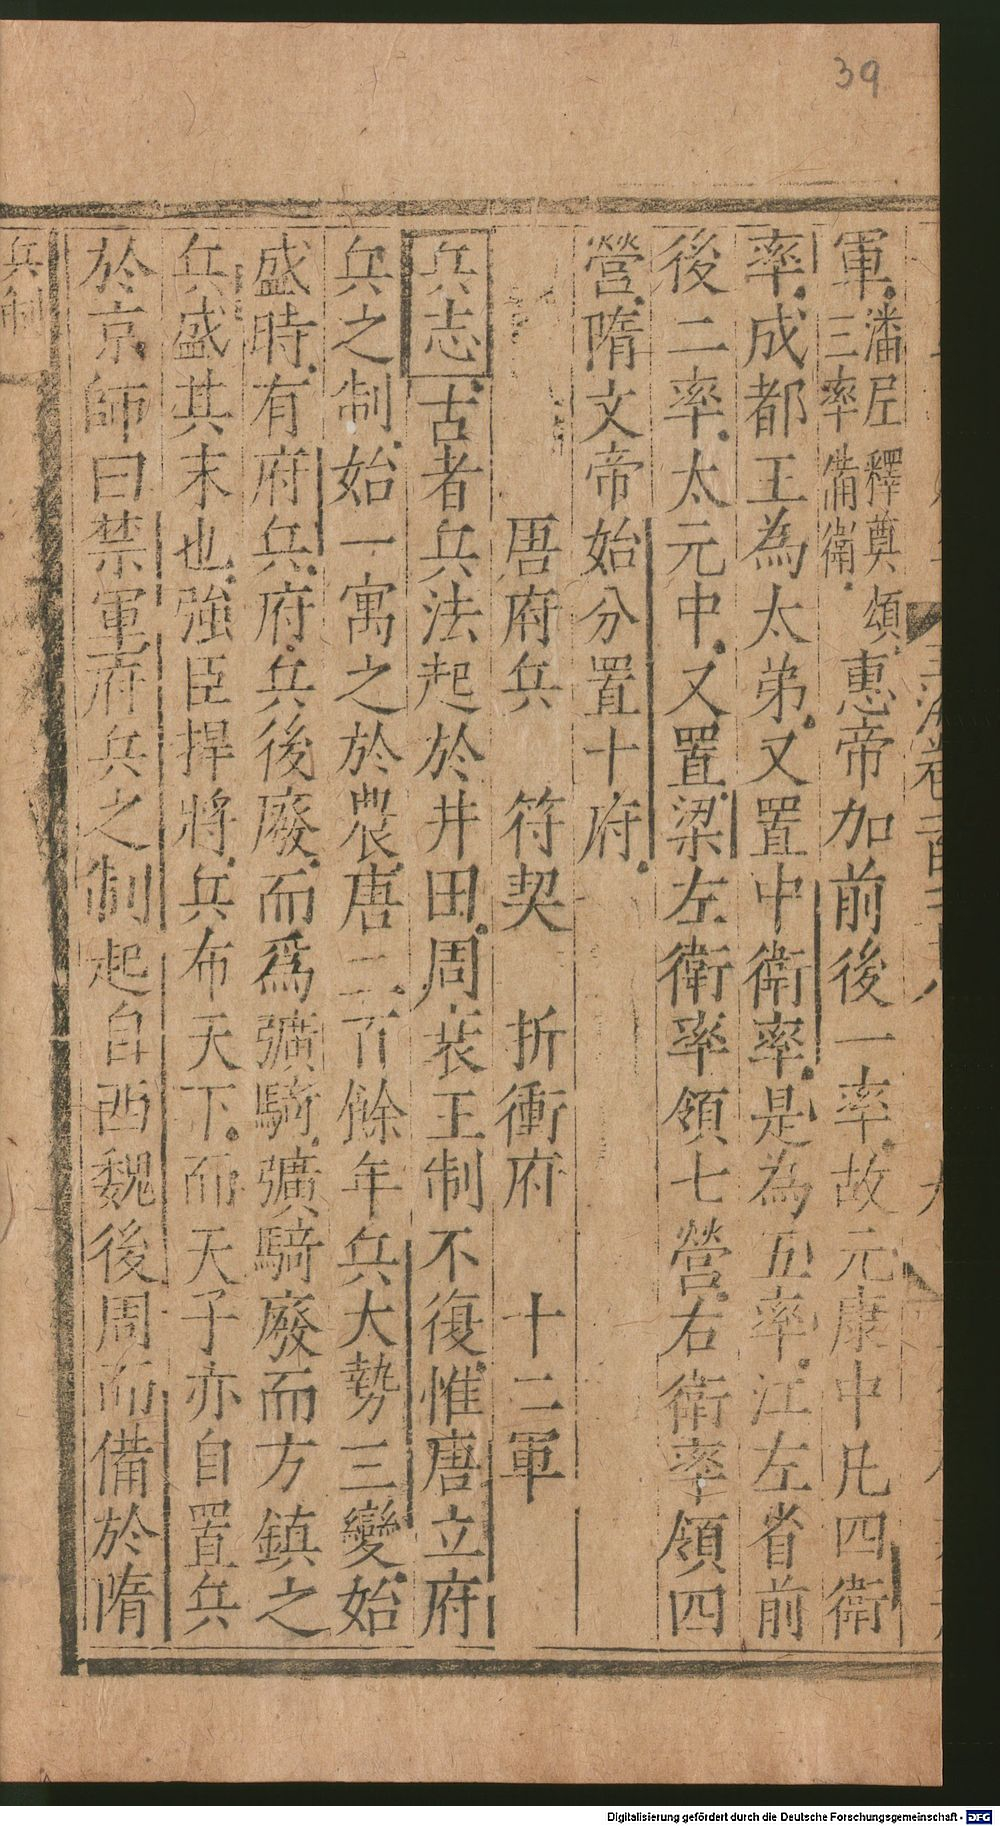 39
軍潘尼釋奠頌三率備衛惠帝加前後一率故元康中凡四衛
率成都王為太弟又置中衛率是為五率江左省前
後二率太元中又置梁左衛率領七營右衛率領四
營隋文帝始分置十府
唐府兵 符契 折衝府 十二軍
兵志古者兵法起於井田周衰王制不復惟唐立府
兵之制始一寓之於農唐二百餘年兵大勢三變始
盛時有府兵府兵後廢而爲彍騎彍騎廢而方鎮之
兵盛其末也強臣捍將兵布天下而天子亦自置兵
於京師曰禁軍府兵之制起自西魏後周而備於隋
兵制
Digitalisierung gefördert durch die Deutsche Forschungsgemeinschaft - DFG